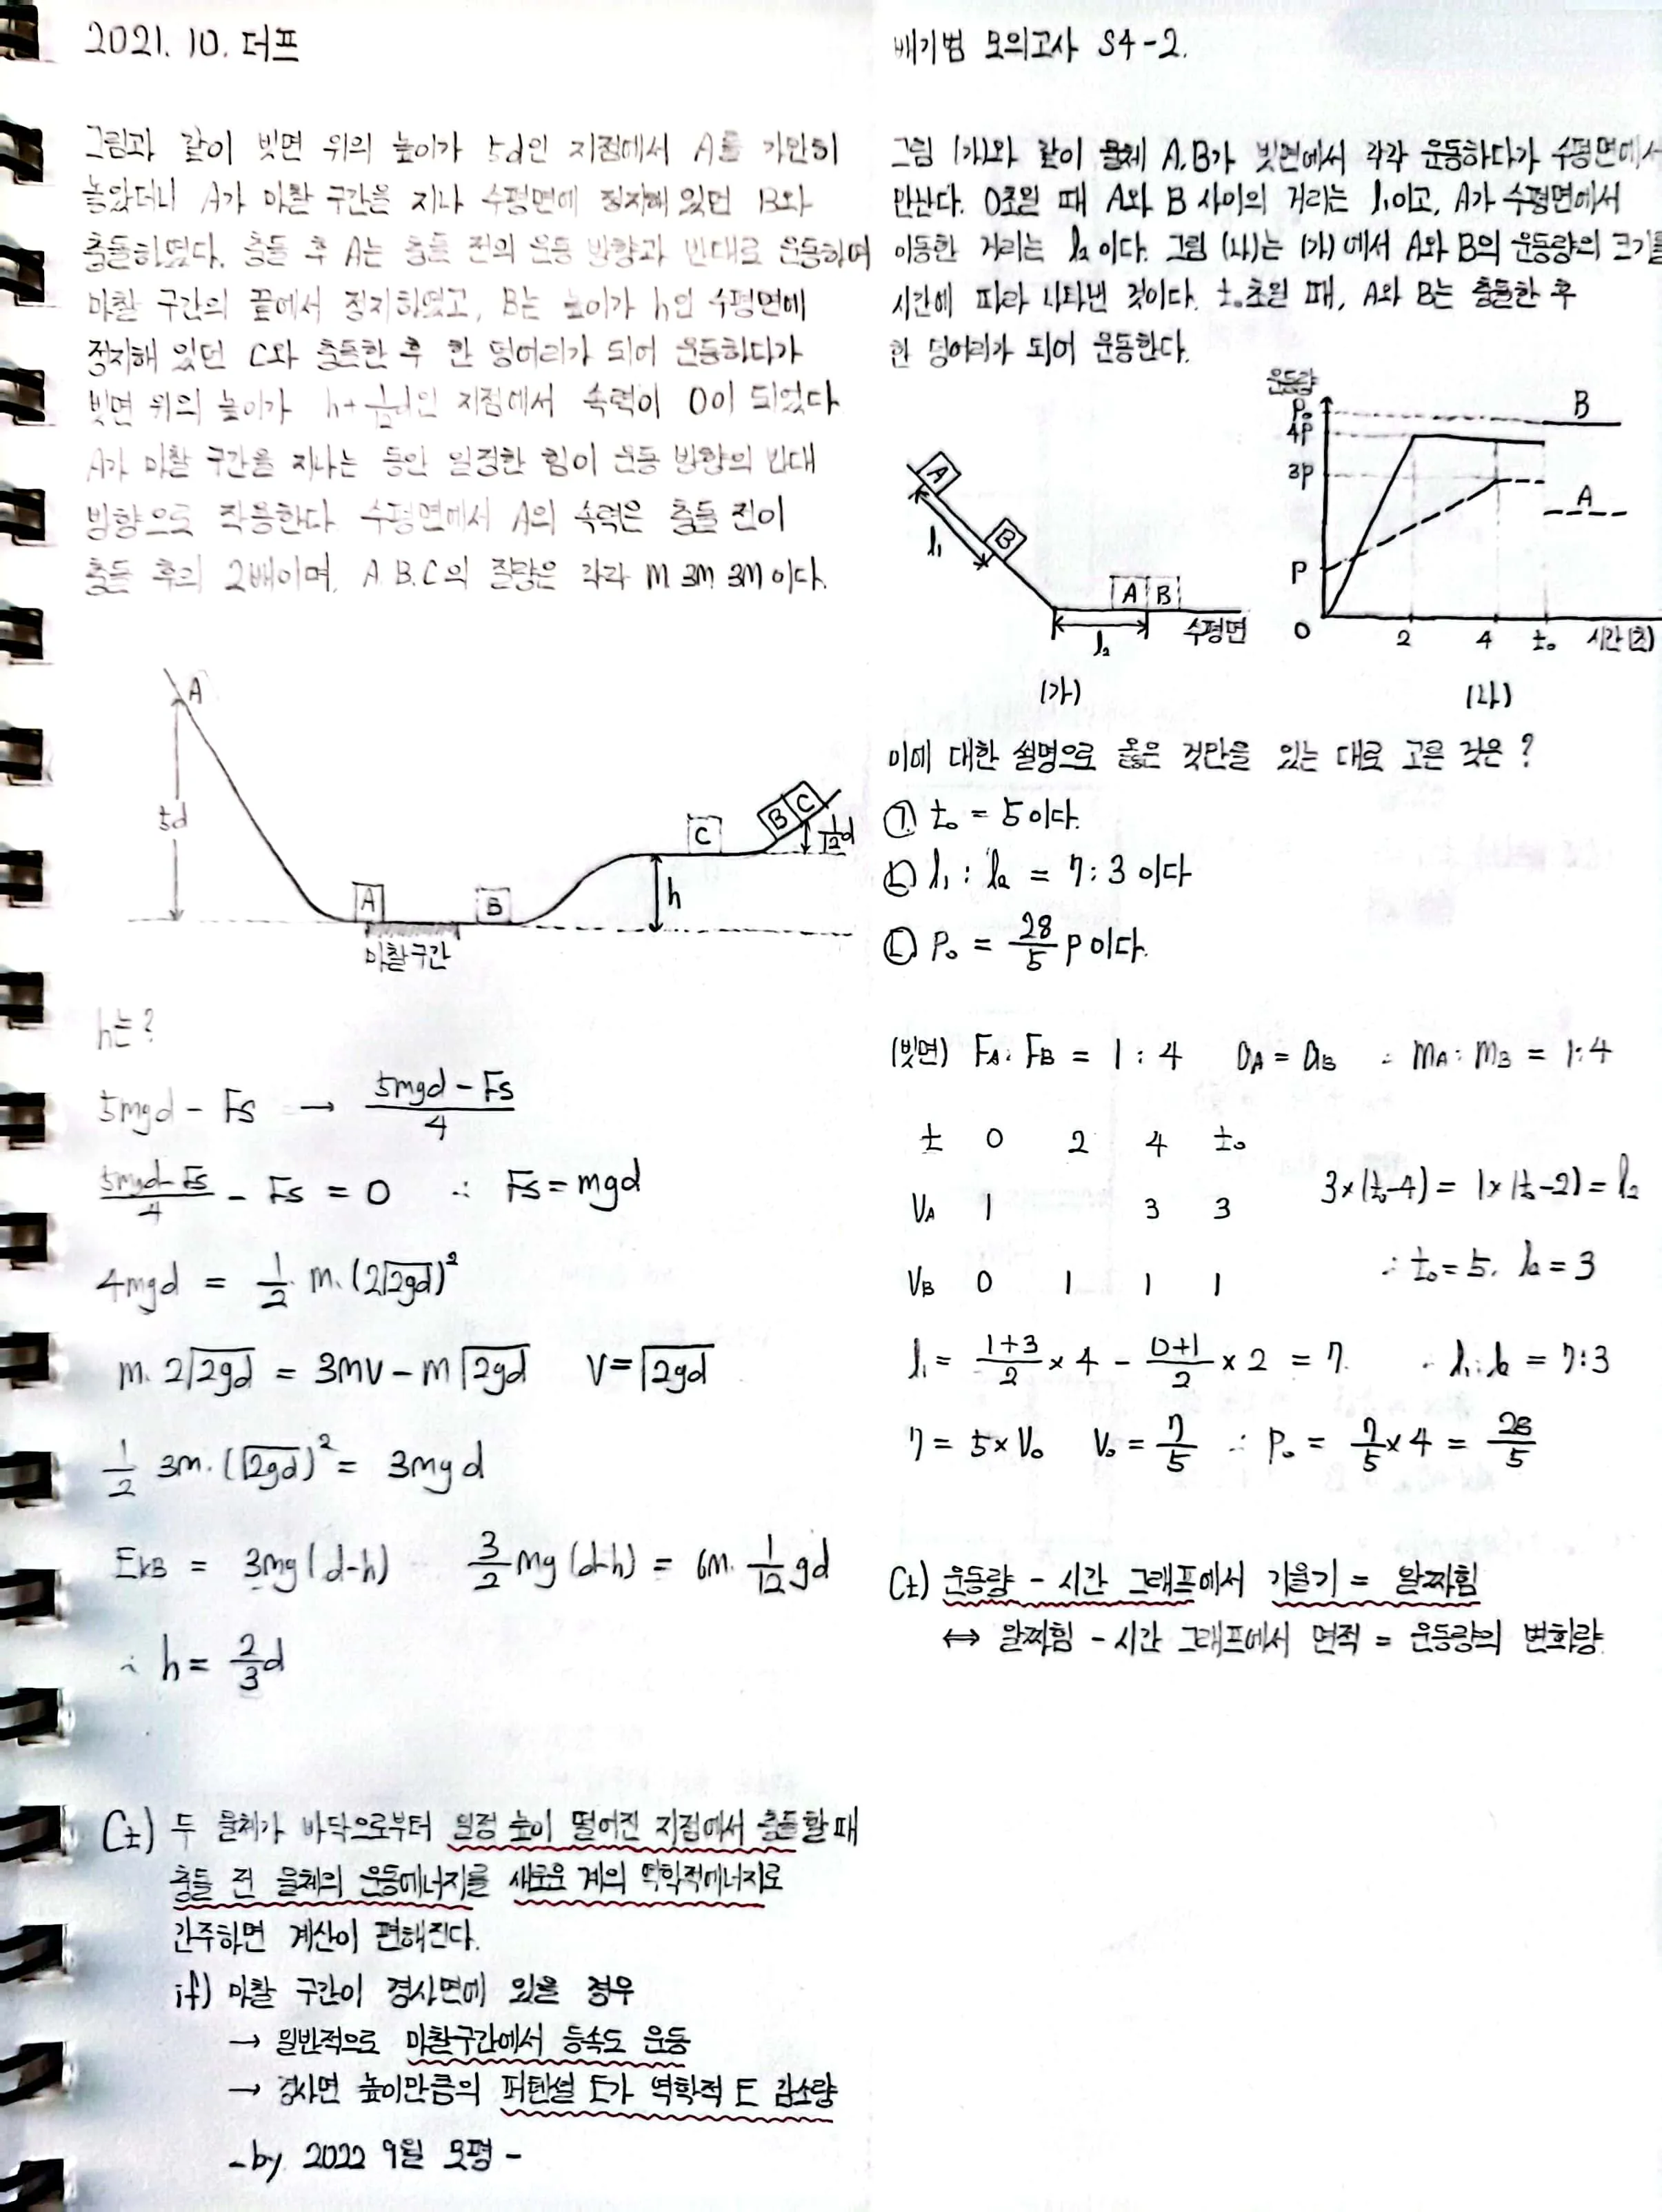 2021. 10. 더프
그림과 같이 빗면 위의 높이가 5d인 지점에서 A를 가만히
놓았더니 A가 마찰 구간을 지나 수평면에 정지해 있던 B와
충돌하였다. 충돌 후 A는 충돌 전의 운동 방향과 반대로 운동하여
마찰 구간의 끝에서 정지하였고, B는 높이가 h인 수평면에
정지해 있던 C와 충돌한 후 한 덩어리가 되어 운동하다가
빗면 위의 높이가 h+1/12d인 지점에서 속력이 0이 되었다
A가 마찰 구간을 지나는 동안 일정한 힘이 운동 방향의 반대
방향으로 작용한다. 수평면에서 A의 속력은 충돌 전이
충돌 후의 2배이며, A.B.C의 질량은 각각 m 3m 3m이다.
A
5d
A
B
C
B C
1/12d
h
마찰구간
h는?
5mgd - Fs → (5mgd - Fs)/4
(5mgd-Fs)/4 - Fs = 0 ∴ Fs = mgd
4mgd = 1/2 m.(2√2gd)²
m. 2√2gd = 3mv - m√2gd v=√2gd
1/2 3m.(√2gd)² = 3mgd
EkB = 3mg(d-h) 3/2 mg(d-h) = 6m. 1/12 gd
∴ h = 2/3 d
Ct) 두 물체가 바닥으로부터 일정 높이 떨어진 지점에서 충돌할 때
충돌 전 물체의 운동에너지를 새로운 계의 역학적에너지로
간주하면 계산이 편해진다.
if) 마찰 구간이 경사면에 있을 경우
→ 일반적으로 마찰구간에서 등속도 운동
→ 경사면 높이만큼의 퍼텐셜 E가 역학적 E 감소량
-by. 2022 9월 모평-
배기범 모의고사 S4-2.
그림 (가)와 같이 물체 A.B가 빗면에서 각각 운동하다가 수평면에서
만난다. 0초일 때 A와 B 사이의 거리는 l₁이고, A가 수평면에서
이동한 거리는 l₂이다. 그림 (나)는 (가)에서 A와 B의 운동량의 크기를
시간에 따라 나타낸 것이다. t₀초일 때, A와 B는 충돌한 후
한 덩어리가 되어 운동한다.
A
B
l₁
A B
l₂
수평면
(가)
운동량
P₀
4P
3P
P
0
2
4
t₀
시간(초)
B
A
(나)
이에 대한 설명으로 옳은 것만을 있는 대로 고른 것은?
ㄱ. t₀ = 5이다.
ㄴ. l₁ : l₂ = 7 : 3이다
ㄷ. P₀ = 28/5 P이다.
(빗면) FA : FB = 1 : 4 aA = aB ∴ mA : mB = 1:4
t 0 2 4 t₀
VA 1 3 3
VB 0 1 1 1
3×(t₀-4) = 1×(t₀-2) = l₂
∴ t₀=5. l₂=3
l₁ = (1+3)/2 × 4 - (0+1)/2 × 2 = 7. ∴ l₁:l₂ = 7:3
7 = 5×V₀ V₀ = 7/5 ∴ P₀ = 7/5 × 4 = 28/5
Ct) 운동량 - 시간 그래프에서 기울기 = 알짜힘
⇔ 알짜힘 - 시간 그래프에서 면적 = 운동량의 변화량.